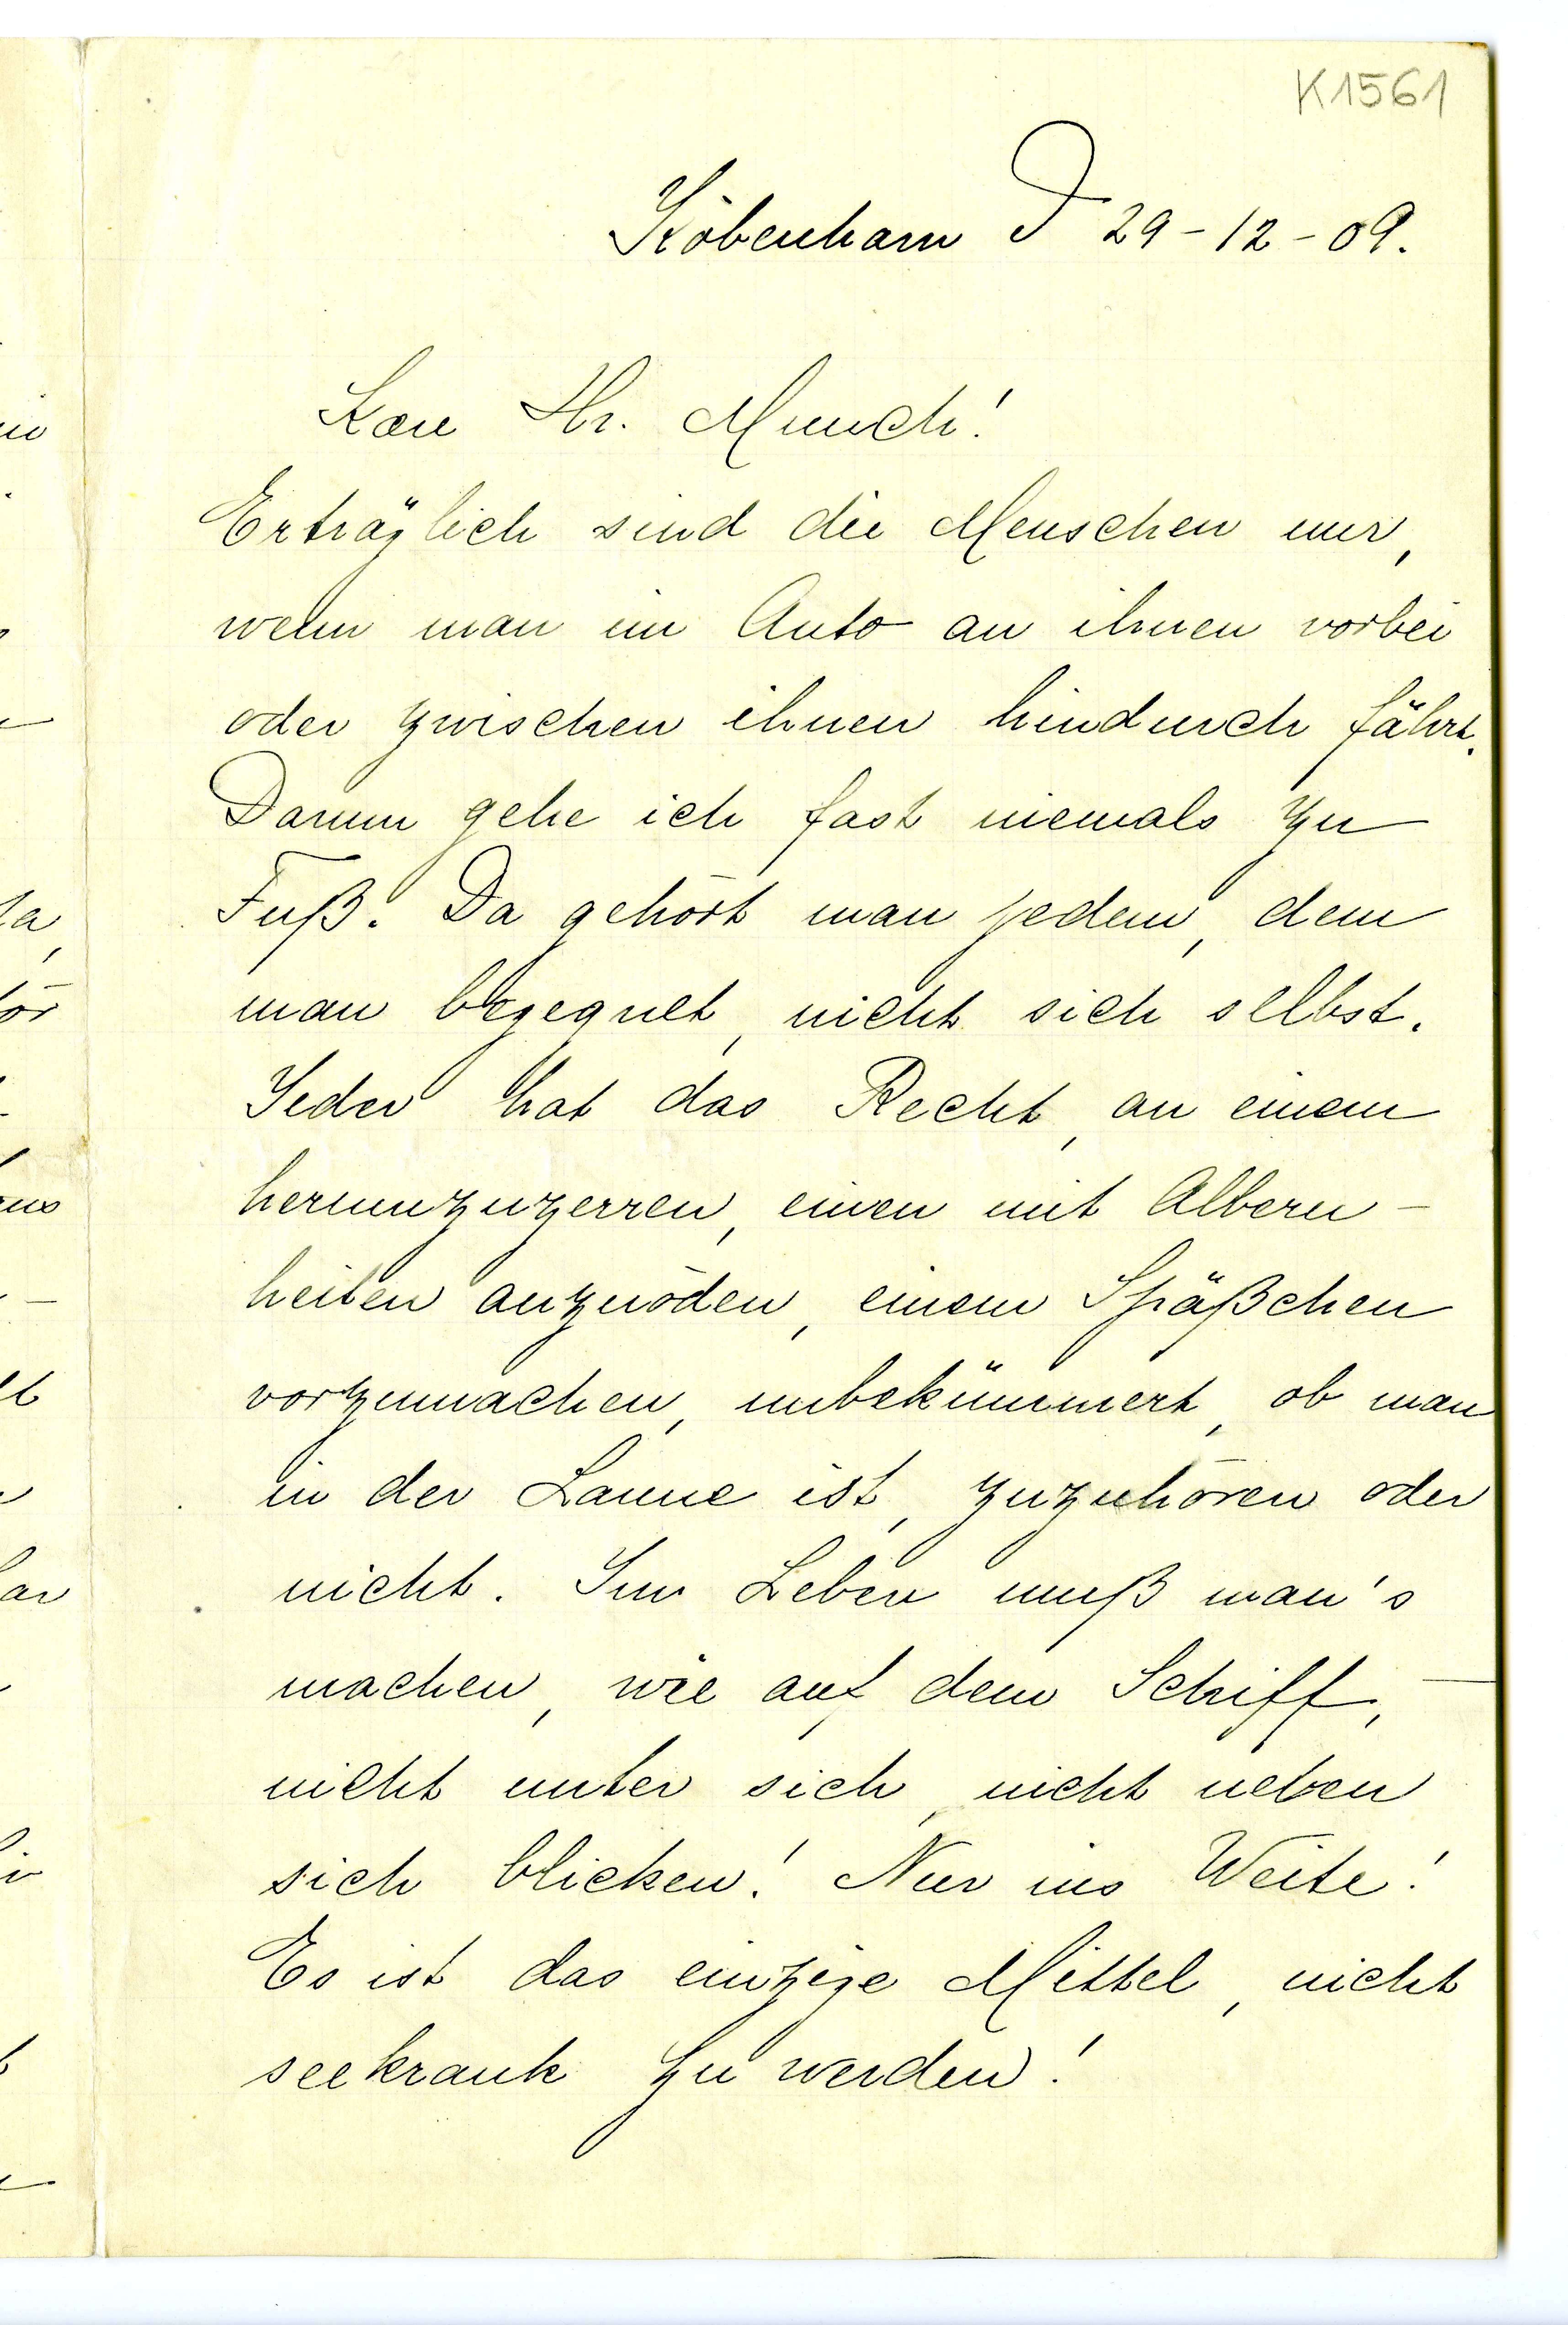 K1561
Köbenhavn D 29-12-09.
Kære Hr. Munch!
Erträglich sind die Menschen nur,
wenn man im Auto an ihnen vorbei
oder zwischen ihnen hindurch fährt.
Darum gehe ich fast niemals zu
Fuß. Da gehört man jedem, dem
man begegnet, nicht sich selbst.
Jeder hat das Recht, an einem
herumzuzerren, einen mit Albern-
heiten anzuöden, einem Späßchen
vorzumachen, unbekümmert, ob man
in der Laune ist, zuzuhören oder
nicht. Im Leben muß man's
machen, wie auf dem Schiff, —
nicht unter sich, nicht neben
sich blicken! Nur ins Weite!
Es ist das einzige Mittel, nicht
seekrank zu werden!